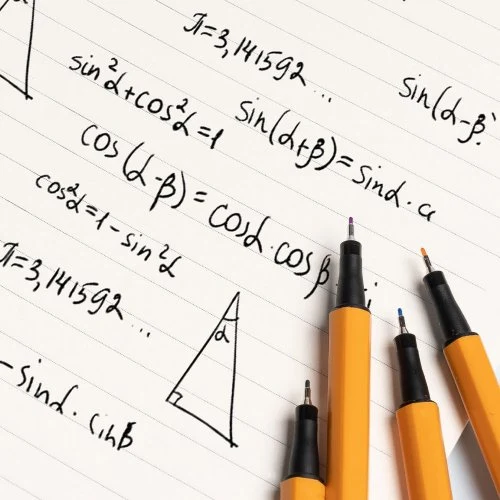 π=3,141592...
sin²α+cos²α=1
sin(α+β)=sinα·c
sin(α-β
cos(α-β)=cosα·cosβ
cos²α=1-sin²α
π=3,141592...
α
-sinα·sinβ